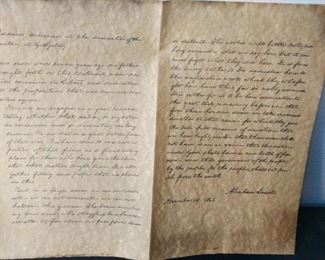 Address delivered at the dedication of the
cemetery at Gettysburg.
score and seven years ago our fathers
brought forth on this continent, a new
conceived in Liberty, and
to the proposition that all men are cre-
ated equal.
Now we are engaged in a great
testing whether that nation, or any nation
so conceived and so dedicated, can long
endure. We are met on a great battle-field
of that war. We have come to dedicate a
portion of that field, as a final resting
place for those who here gave their lives
that that nation might live. It is alto-
gether fitting and proper that we should
do this.
But, in a larger sense, we can not dedi-
cate—we can not consecrate—we can not
hallow—this ground. The brave men, liv-
ing and dead, who struggled here have con-
secrated it, far above our poor power
or detract. The world will little note, nor
long remember what we say here, but it can
never forget what they did here. It is for us
the living, rather, to be dedicated here to
the unfinished work which they who fou-
ght here have thus far so nobly advanced.
It is rather for us to be here dedicated to
the great task remaining before us—that
from these honored dead we take increased
devotion to that cause for which they gave
the last full measure of devotion—that
we here highly resolve that these dead shall
not have died in vain—that this nation,
under God, shall have a new birth of free-
dom—and that government of the people,
by the people, for the people, shall not per-
ish from the earth.
Abraham Lincoln.
November 19, 1863.